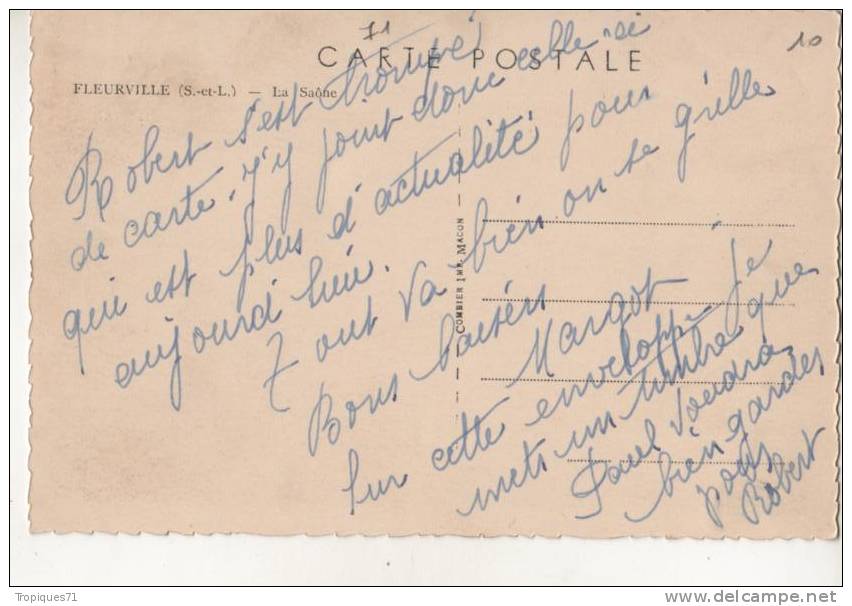 71
10
CARTE POSTALE
FLEURVILLE (S.-et-L.) — La Saône
Robert s'est trompé
de carte. J'y joint donc celle-ci
qui est plus d'actualité pour
aujourd'hui.
Tout va bien on se grille
Bons baisers
Margot
Sur cette enveloppe je
mets un timbre que
Paul voudra
bien garder
pour
Robert
COMBIER IMP. MACON
Tropiques71
delcampe.net